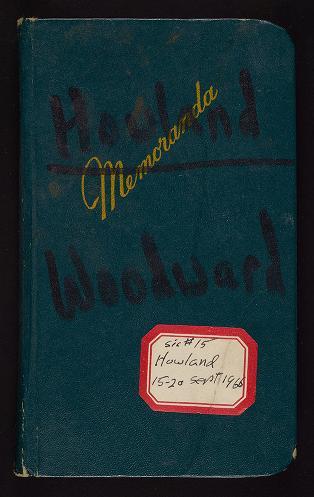 Howland
Memoranda
Woodward
sic#15
Howland
15-20 Sept 1966